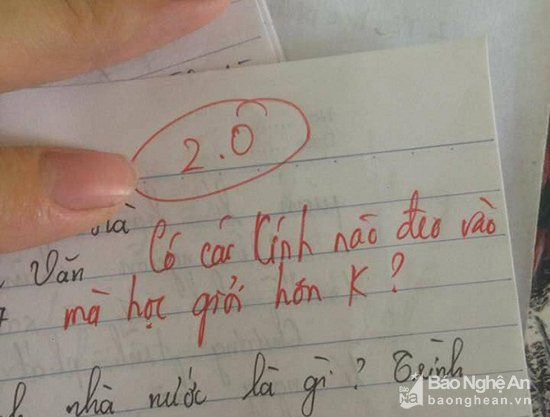 2.0
Có các kính nào đeo vào
Văn
mà học giỏi hơn K?
nhà nước là gì? Trình
Báo Nghệ An
baonghean.vn